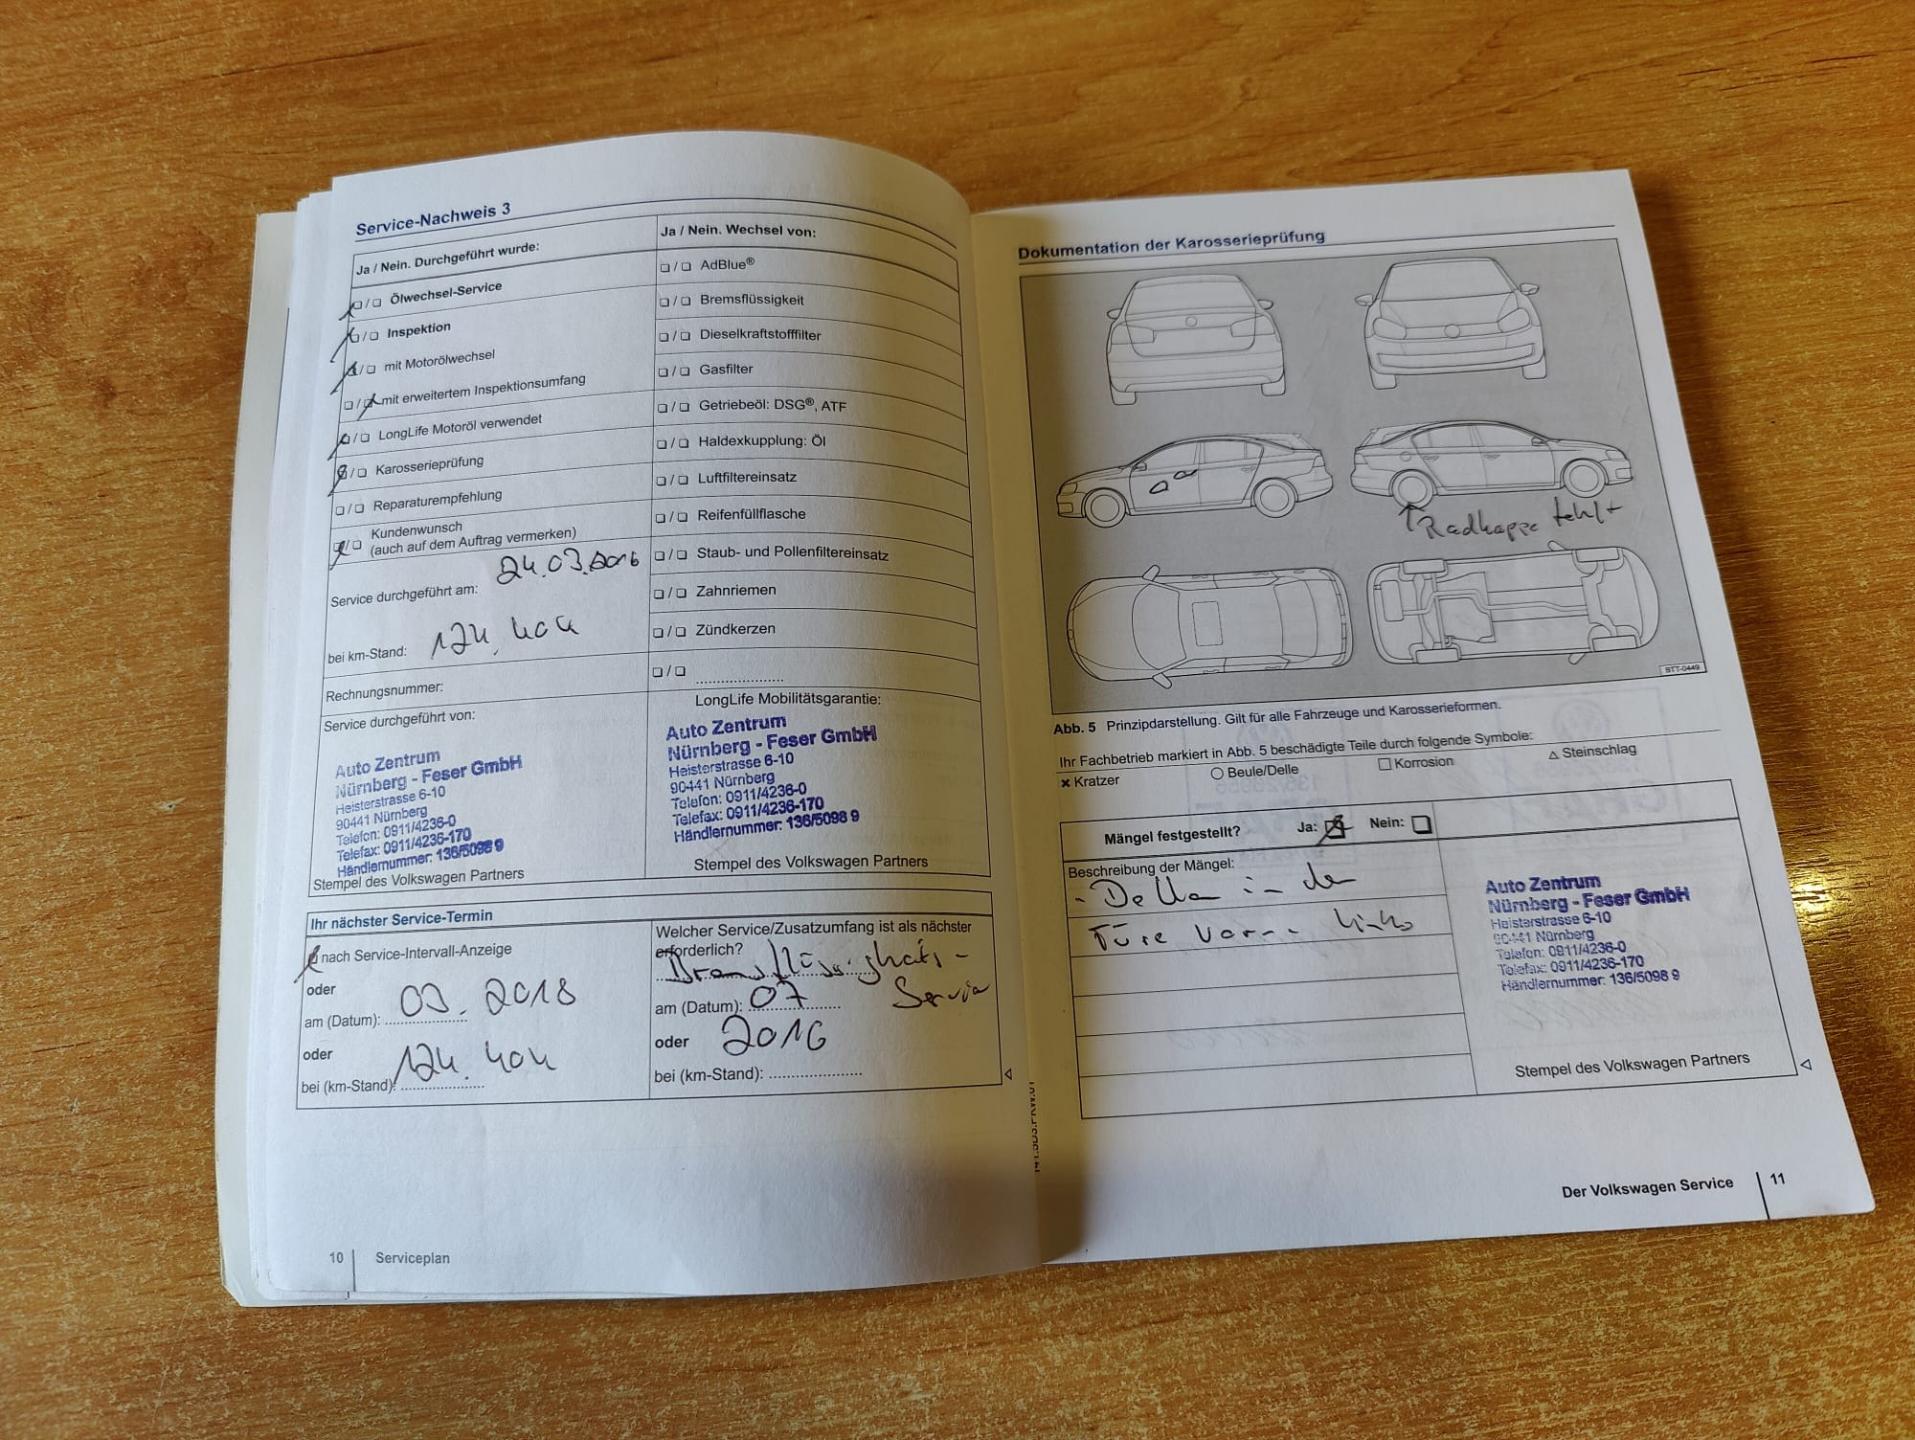 Service-Nachweis 3
Ja / Nein. Durchgeführt wurde:
❏ / ❏ Ölwechsel-Service
❏ / ❏ Inspektion
❏ / ❏ mit Motorölwechsel
❏ / ❏ mit erweitertem Inspektionsumfang
❏ / ❏ LongLife Motoröl verwendet
❏ / ❏ Karosserieprüfung
❏ / ❏ Reparaturempfehlung
❏ / ❏ Kundenwunsch
(auch auf dem Auftrag vermerken)
Service durchgeführt am: 24.03.2016
bei km-Stand: 124.404
Rechnungsnummer:
Service durchgeführt von:
Auto Zentrum
Nürnberg - Feser GmbH
Heisterstrasse 6-10
90441 Nürnberg
Telefon: 0911/4236-0
Telefax: 0911/4236-170
Händlernummer: 136/5098 9
Stempel des Volkswagen Partners
Ja / Nein. Wechsel von:
❏ / ❏ AdBlue®
❏ / ❏ Bremsflüssigkeit
❏ / ❏ Dieselkraftstofffilter
❏ / ❏ Gasfilter
❏ / ❏ Getriebeöl: DSG®, ATF
❏ / ❏ Haldexkupplung: Öl
❏ / ❏ Luftfiltereinsatz
❏ / ❏ Reifenfüllflasche
❏ / ❏ Staub- und Pollenfiltereinsatz
❏ / ❏ Zahnriemen
❏ / ❏ Zündkerzen
❏ / ❏ ......................
LongLife Mobilitätsgarantie:
Auto Zentrum
Nürnberg - Feser GmbH
Heisterstrasse 6-10
90441 Nürnberg
Telefon: 0911/4236-0
Telefax: 0911/4236-170
Händlernummer: 136/5098 9
Stempel des Volkswagen Partners
Ihr nächster Service-Termin
nach Service-Intervall-Anzeige
oder
am (Datum): 03.2018
oder
bei (km-Stand): 124.404
Welcher Service/Zusatzumfang ist als nächster
erforderlich? Bremsflüssigkeits-
Service
am (Datum): 07
oder 2016
bei (km-Stand): ......................
10 Serviceplan
Dokumentation der Karosserieprüfung
Radkappe fehlt
BTT-0449
Abb. 5 Prinzipdarstellung. Gilt für alle Fahrzeuge und Karosserieformen.
Ihr Fachbetrieb markiert in Abb. 5 beschädigte Teile durch folgende Symbole:
✖ Kratzer ○ Beule/Delle □ Korrosion △ Steinschlag
Mängel festgestellt? Ja: ❏ Nein: ❏
Beschreibung der Mängel:
- Delle in der
Türe vorne links
Auto Zentrum
Nürnberg - Feser GmbH
Heisterstrasse 6-10
90441 Nürnberg
Telefon: 0911/4236-0
Telefax: 0911/4236-170
Händlernummer: 136/5098 9
Stempel des Volkswagen Partners
Der Volkswagen Service 11